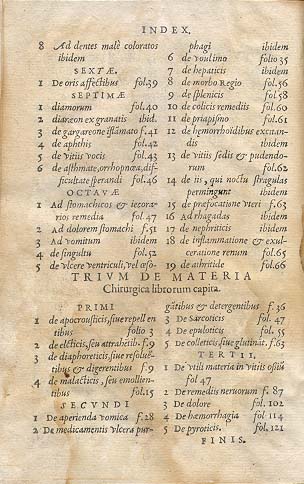 INDEX.
8 Ad dentes malè coloratos
ibidem
SEXTÆ.
1 De oris affectibus fol.39
SEPTIMÆ
1 diamorum fol.40
2 diaræon ex granatis ibid.
3 de gargareone iſlāmato f.41
4 de aphthis f.42
5 de vitiis vocis f.43
6 de aſthmate, orthopnœa, dif-
ficultate ſpirandi f.46
OCTAVÆ
1 Ad ſtomachicos & iecora-
rios remedia f.47
2 Ad dolorem ſtomachi f.51
3 Ad vomitum ibidem
4 de ſingultu f.52
5 de vlcere ventriculi, vel œſo-
phagi ibidem
6 de voulino folio 35
7 de hepaticis ibidem
8 de morbo Regio fol.56
9 de ſplenicis fol.58
10 de colicis remediis fol.60
11 de priapiſmo fol.61
12 de hæmorrhoidibus excitan-
dis ibidem
13 de vitiis ſedis & pudendo-
rum fol.62
14 de iis, qui noctu ſtragulas
permingunt ibidem
15 de præfocatione vteri f.63
16 Ad rhagadas ibidem
17 de nephriticis ibidem
18 de inflammatione & exul-
ceratione renum fol.65
19 de arthritide fol.66
TRIVM DE MATERIA
Chirurgica librorum capita.
PRIMI
1 de apocrouſticis, ſiue repell en
tibus folio 3
2 de elcticis, ſeu attrahētib. f.9
3 de diaphoreticis, ſiue reſolue-
tibus & digerentibus f.9
4 de malacticis, ſeu emollien-
tibus fol.15
SECVNDI
1 De aperienda vomica f.28
2 De medicamentis vlcera pur-
gātibus & detergentibus f.36
3 De Sarcoticis fol.47
4 De epuloticis fol.55
5 De colleticis, ſiue glutināt. f.63
TERTII.
1 De vtili materia in vitiis oſsiū
fol 47
2 De remediis neruorum f.87
3 De dolore fol.102
4 De hæmorrhagia fol 114
5 De pyroticis. fol.121
FINIS.